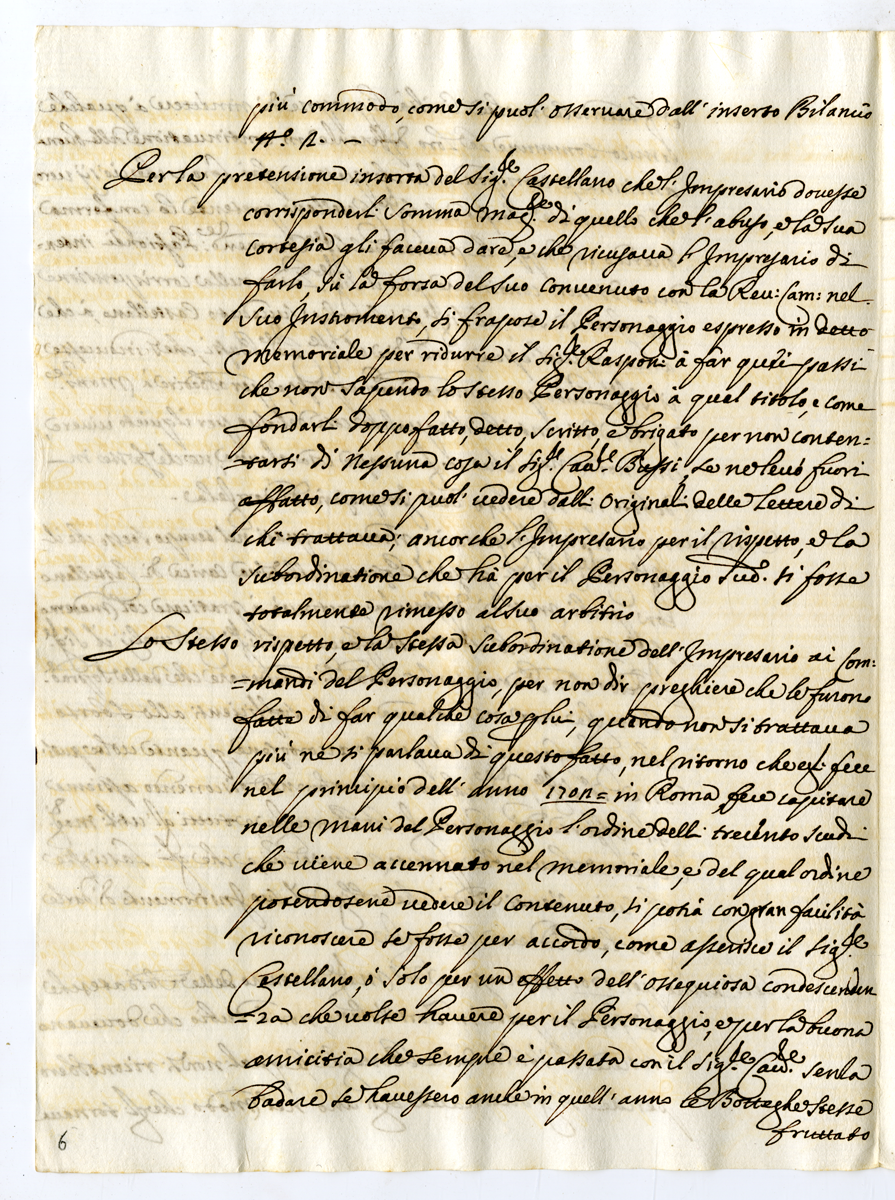 più commodo, come si puol' osservare dall' inserto Bilancio
N.º 2. –
Per la pretensione insorta del Sig.re Castellano che l'Impresario dovesse
corrisponderli somma mag.re di quello che l'abuso, e la sua
cortesia gli faceva dare, e che ricusava l'Impresario di
farlo, sù la forza del suo convenuto con la Rev: Cam: nel
suo Instromento, si frapose il Personaggio espresso in detto
memoriale per ridurre il Sig.re Rasponi à far questi passi
che non sapendo lo stesso Personaggio à qual titolo, e come
fondarli doppo fatto, detto, scritto, e brigato per non conten=
=tarsi di nessuna cosa il Sig.re Cav.re Bussi se ne levò fuori
affatto, come si puol' vedere dalli Originali delle lettere di
chi trattava; ancorche l'Impresario per il rispetto, e la
subordinatione che hà per il Personaggio sud.º si fosse
totalmente rimesso al suo arbitrio
Lo stesso rispetto, e la stessa subordinatione dell'Impresario ai Com=
=mandi del Personaggio, per non dir preghiere che le furono
fatte di far qualche cosa più, quando non si trattava
più ne si parlava di questo fatto, nel ritorno che egli fece
nel principio dell' anno 1701= in Roma, fece capitare
nelle mani del Personaggio l'ordine delli trecento scudi
che viene accennato nel memoriale, e del qual ordine
potendosene vedere il contenuto, si potrà con gran facilità
riconoscere se fosse per accordo, come asserisce il Sig.re
Castellano, ò solo per un effetto dell'ossequiosa condescenden
=za che volse havere per il Personaggio, e per la buona
amicitia che sempre è passata con il Sig.re Cav.re senza
badare se havessero anche in quell'anno le Botteghe stesse
fruttato
6